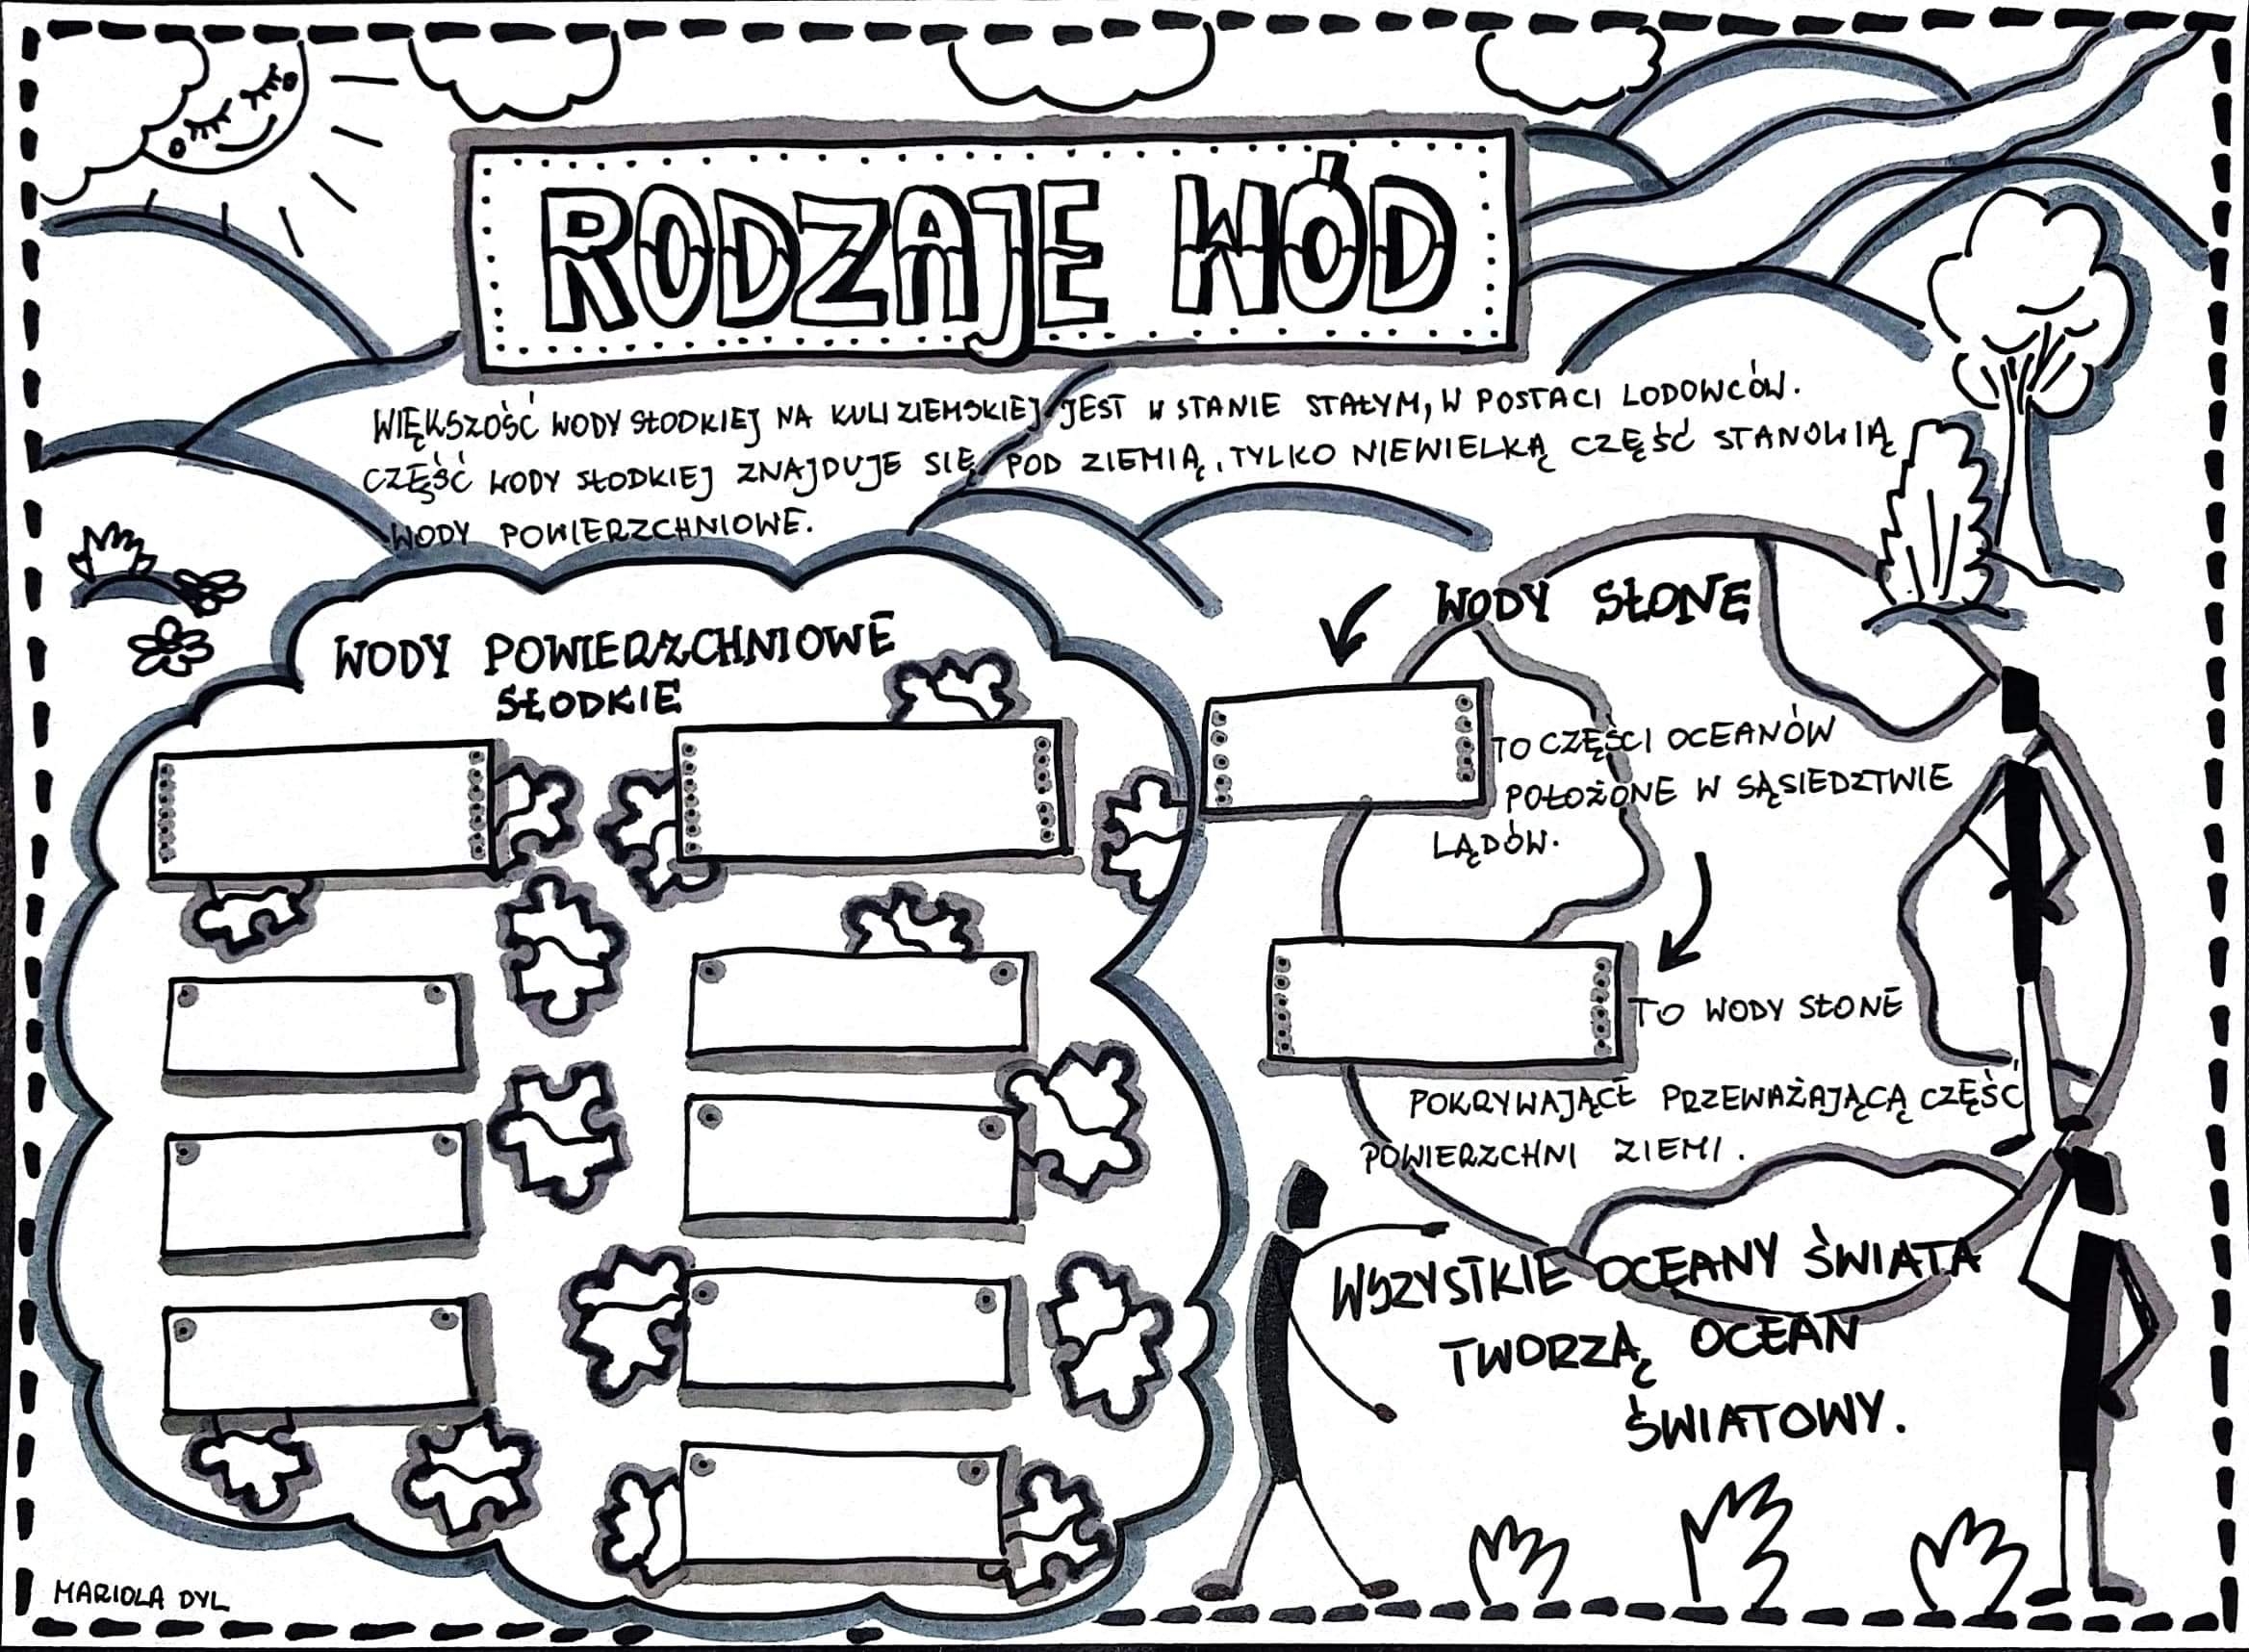 RODZAJE WÓD
WIĘKSZOŚĆ WODY SŁODKIEJ NA KULI ZIEMSKIEJ JEST W STANIE STAŁYM, W POSTACI LODOWCÓW.
CZĘŚĆ WODY SŁODKIEJ ZNAJDUJE SIĘ POD ZIEMIĄ, TYLKO NIEWIELKĄ CZĘŚĆ STANOWIĄ
WODY POWIERZCHNIOWE.
WODY POWIERZCHNIOWE
SŁODKIE
WODY SŁONE
TO CZĘŚCI OCEANÓW
POŁOŻONE W SĄSIEDZTWIE
LĄDÓW.
TO WODY SŁONE
POKRYWAJĄCE PRZEWAŻAJĄCĄ CZĘŚĆ
POWIERZCHNI ZIEMI.
WSZYSTKIE OCEANY ŚWIATA
TWORZĄ OCEAN
ŚWIATOWY.
MARIOLA DYL